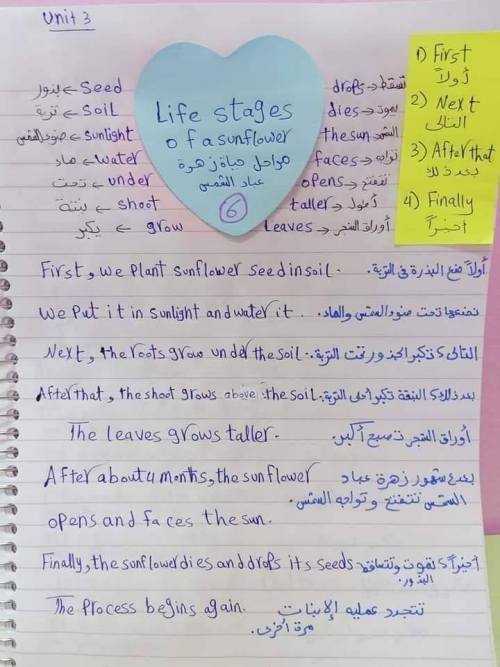 Unit 3
Life stages
of a sunflower
مراحل حياة زهرة
عباد الشمس
6
بذور ← seed
تربة ← soil
ضوء الشمس ← sunlight
ماء ← water
تحت ← under
نبتة ← shoot
يكبر ← grow
drops → تسقط
dies → يموت
the sun → الشمس
faces → تواجه
opens → تتفتح
taller → أطول
leaves → أوراق الشجر
1) First
أولاً
2) Next
التالى
3) After that
بعد ذلك
4) Finally
أخيراً
First, we plant sunflower seed in soil. أولاً نضع البذرة فى التربة.
We put it in sunlight and water it. نضعها تحت ضوء الشمس والماء.
Next, the roots grow under the soil. التالى، تكبر الجذور تحت التربة.
After that, the shoot grows above the soil. بعد ذلك، النبتة تكبر أعلى التربة.
The leaves grows taller. أوراق الشجر تصبح أكبر.
After about 4 months, the sunflower بعد ٤ شهور زهرة عباد
opens and faces the sun. الشمس تتفتح وتواجه الشمس.
Finally, the sunflower dies and drops its seeds أخيراً، تموت وتتساقط
البذور.
The process begins again. تتجدد عملية الإنبات
مرة أخرى.